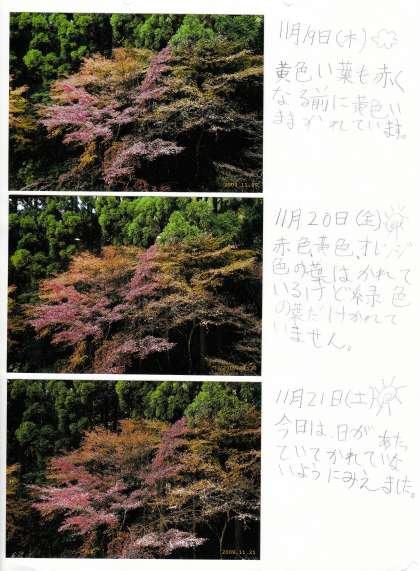 11月19日(木)
黄色い葉も赤く
なる前に黄色い
ままかれています。
2009.11.19
11月20日(金)
赤色黄色、オレンジ
色の葉はかれて
いるけど緑色
の葉だけかれて
いません。
11月21日(土)
今日は、日があた
っていてかれていな
いようにみえました。
2009.11.21